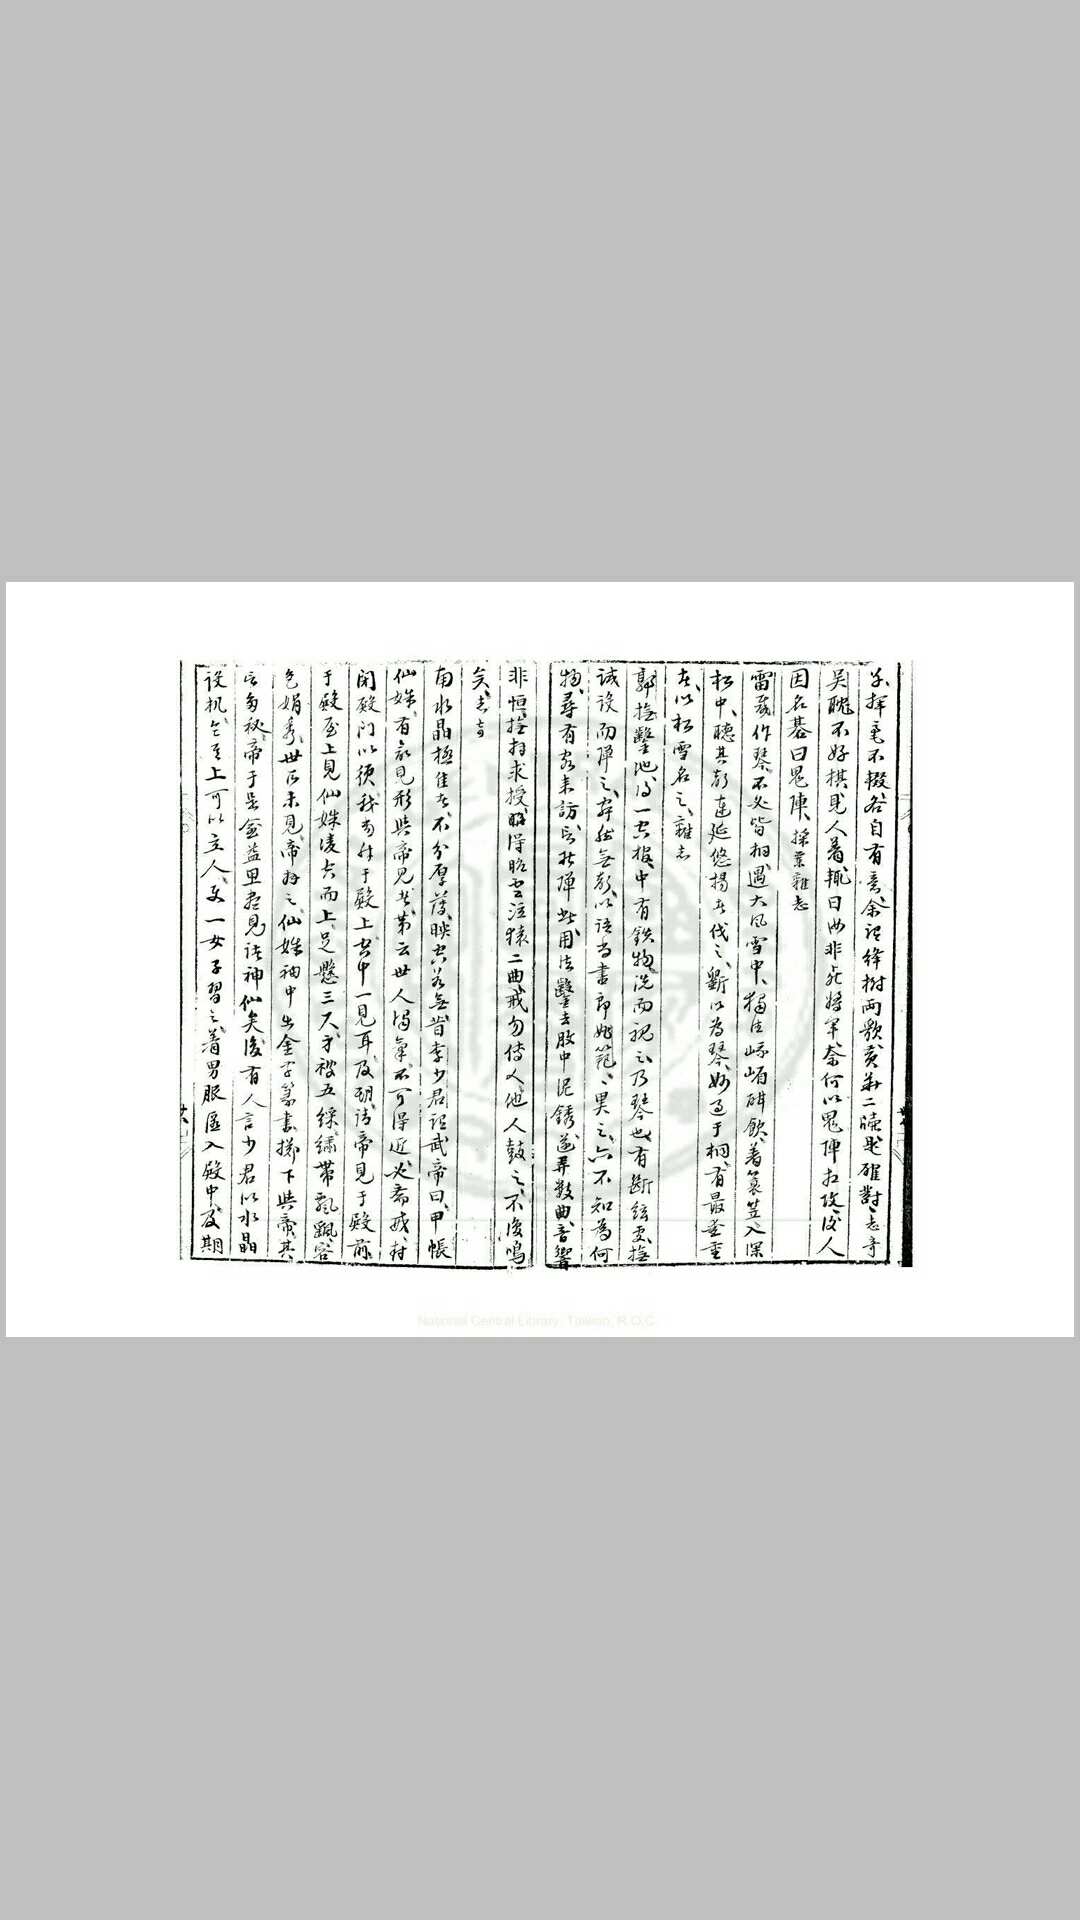 不輟各自有意余謂絳樹兩歌黃華二牘是確對志奇
吳醜不好棋見人着輒曰汝非死將軍奈何以鬼陣相攻後人
因名棊曰鬼陣採蘭雜志
雷威作琴不必皆桐遇大風雪中獨往峨嵋酣飲着簑笠入深
松中聽其聲連延悠揚者伐之斲以為琴妙過于桐有最愛重
者以松雪名之雜志
郭撫鑿池得一空棺中有鉄物洗而視之乃琴也有斷絃更撫
試設而彈之寂然無聲以語尚書郎範異之亦不知為何
物尋有客來訪言能彈此用法鑿去股中泥銹遂弄數曲音響
非恒撫拜求授得二曲戒勿傳人他人鼓之不復鳴
矣志奇
南水晶極佳者不分厚薄映空若無昔李少君詔武帝曰甲帳
仙姝有欲見形與帝見者第云世人濁氣不可得近必齋戒
閉殿門以須我而升于殿上空中一見耳及期請帝見于殿前
于殿屋上見仙姝凌空而上足懸三尺身被五綵繡帶飄飄容
色娟秀世所未見帝拜之仙姝袖中出金字篆書擲下與帝其
言多秘帝于是益思盡見諸神仙矣後有人言少君以水晶
設机上可以立人一女子習之着男服匿入殿中及期
National Central Library, Taiwan, R.O.C.